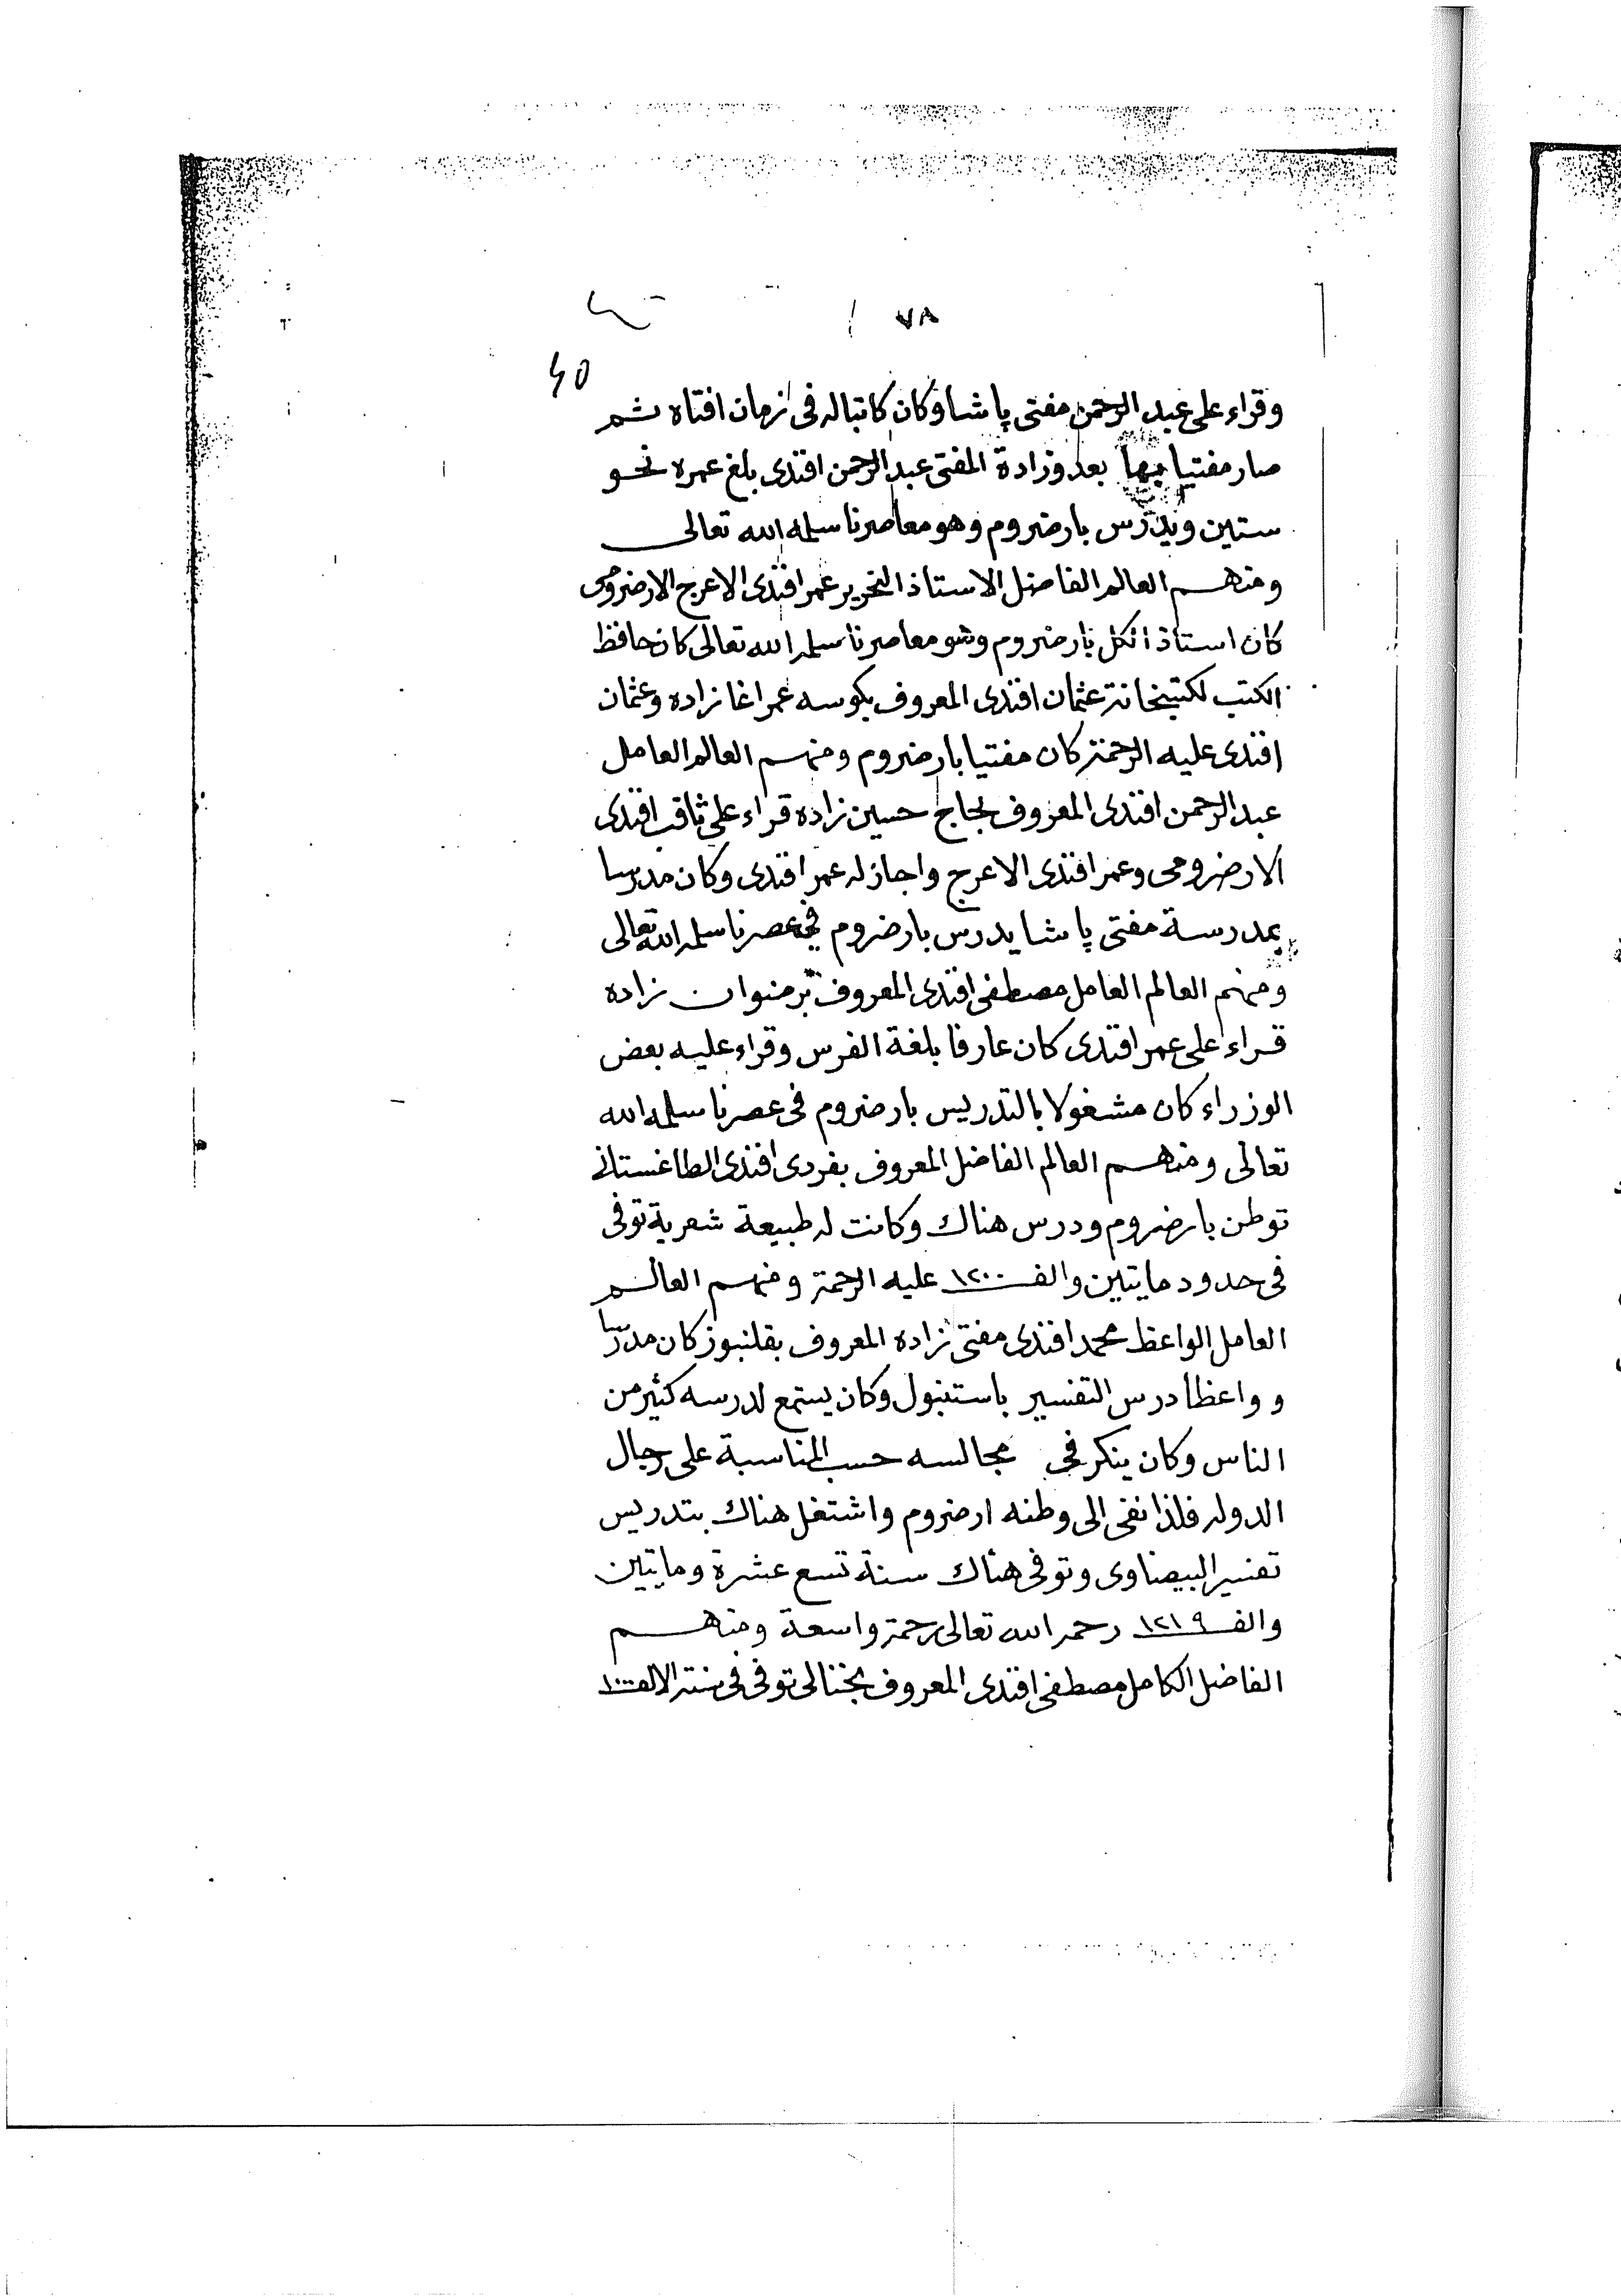 ٧٨
٤٥
وقراء على عبد الرحمن مفتى پاشا وكان كاتبا له فى زمان افتاه ثم
صار مفتيا بها بعد وزادة المفتى عبد الرحمن افندى بلغ عمره نحو
ستين ويدرس بارضروم وهو معاصرنا سلمه الله تعالى
ومنهم العالم الفاضل الاستاذ النحرير عمر افندى الاعرج الارضرومى
كان استاذ الكل بارضروم وهو معاصرنا سلمه الله تعالى كان حافظ
الكتب لكتبخانة عثمان افندى المعروف بكوسه عمر اغا زاده وعثمان
افندى عليه الرحمة كان مفتيا بارضروم ومنهم العالم العامل
عبد الرحمن افندى المعروف بحاج حسين زاده قراء على ثاقب افندى
الارضرومى وعمر افندى الاعرج واجاز له عمر افندى وكان مدرسا
بمدرسة مفتى پاشا يدرس بارضروم فى عصرنا سلمه الله تعالى
ومنهم العالم العامل مصطفى افندى المعروف برضوان زاده
قراء على عمر افندى كان عارفا بلغة الفرس وقراء عليه بعض
الوزراء كان مشغولا بالتدريس بارضروم فى عصرنا سلمه الله
تعالى ومنهم العالم الفاضل المعروف بفردى افندى الطاغستانى
توطن بارضروم ودرس هناك وكانت له طبيعة شعرية توفى
فى حدود مايتين والف ١٢٠٠ عليه الرحمة ومنهم العالم
العامل الواعظ محمد افندى مفتى زاده المعروف بقلنبوز كان مدرسا
وواعظا درس التفسير باستنبول وكان يستمع لدرسه كثير من
الناس وكان ينكر فى مجالسه حسب المناسبة على رجال
الدوله فلذا نفى الى وطنه ارضروم واشتغل هناك بتدريس
تفسير البيضاوى وتوفى هناك سنة تسع عشرة ومايتين
والف ١٢١٩ رحمه الله تعالى رحمة واسعة ومنهم
الفاضل الكامل مصطفى افندى المعروف بخنالى توفى فى سنة الالف ١٠٠٠